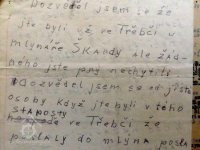 Dozvěděl jsem se že
jste byli už ve Třebči u
mlynáře SKARDY ale žád-
ného jste prý nechytili
Dozvěděl jsem se od jisté
osoby když jste byli u těho
STAROSTY
ve Třebči že
poslaly do mlýna posla